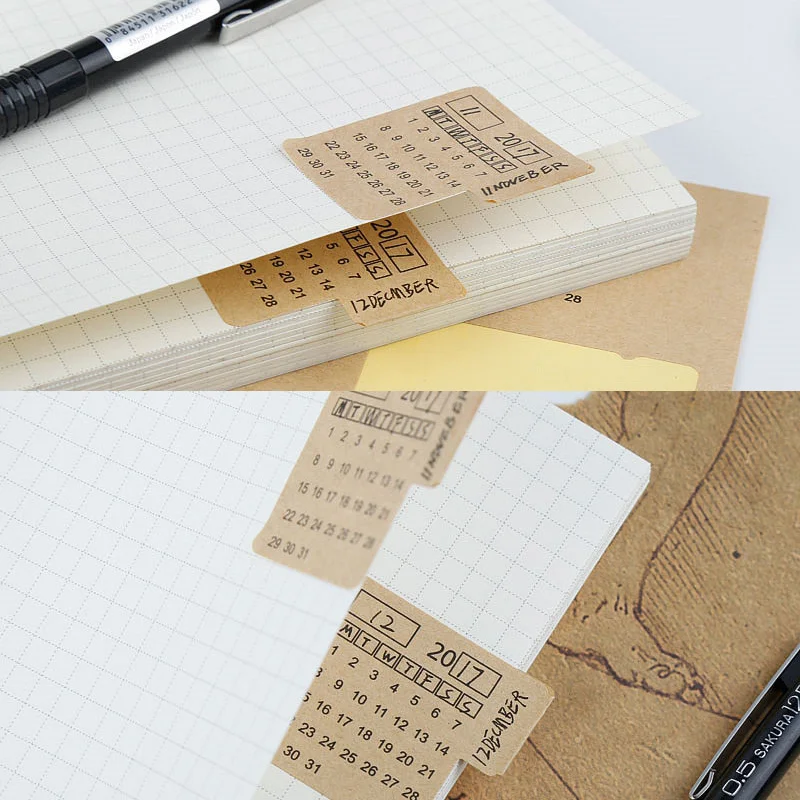 0 84511 31622
11 2017
M T W T F S S
1 2 3 4 5 6 7
8 9 10 11 12 13 14
15 16 17 18 19 20 21
22 23 24 25 26 27 28
29 30 31
11 NOVEBER
2017
F S S
5 6 7
12 13 14
19 20 21
26 27 28
12 DECMBER
28
2017
M T W T F S S
1 2 3 4 5 6 7
8 9 10 11 12 13 14
15 16 17 18 19 20 21
22 23 24 25 26 27 28
29 30 31
11 NOVEBER
12 2017
M T W T F S S
1 2 3 4 5 6 7
9 10 11 12 13 14
16 17 18 19 20 21
23 24 25 26 27 28
30 31
12 DECMBER
0.5 SAKURA 125